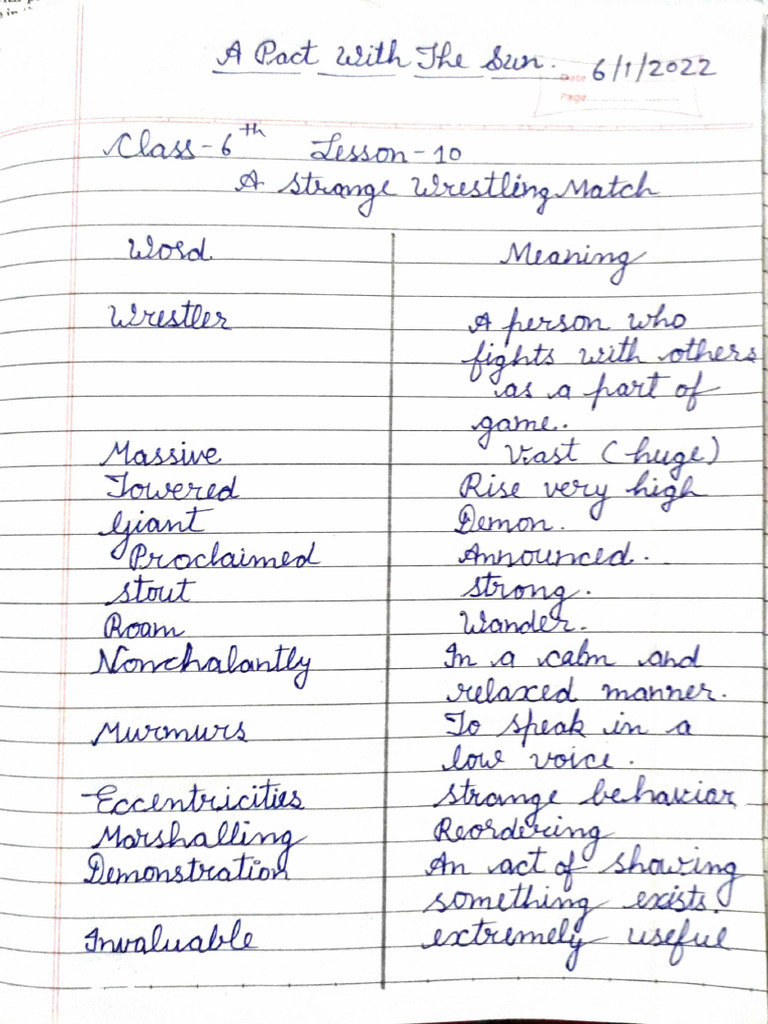 A Pact With The Sun.
Date 6/1/2022
Page
Class-6th Lesson-10
A strange Wrestling Match
Word Meaning
Wrestler A person who
fights with others
as a part of
game.
Massive Vast (huge)
Towered Rise very high
Giant Demon.
Proclaimed Announced.
stout strong.
Roam Wander.
Nonchalantly In a calm and
relaxed manner.
Murmurs To speak in a
low voice.
Eccentricities strange behaviar
Marshalling Reordering
Demonstration An act of showing
something exists.
Invaluable extremely useful